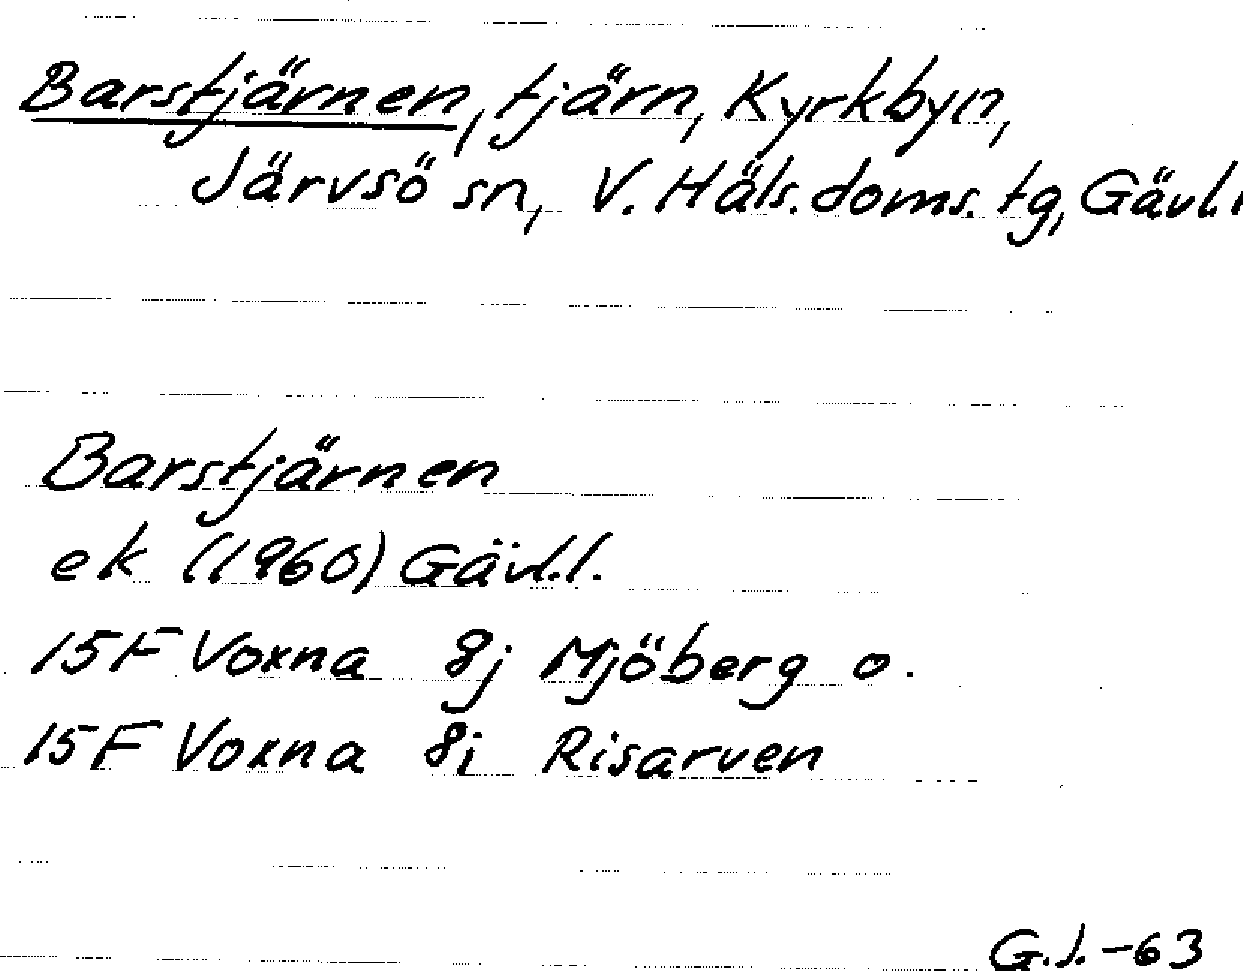 Barstjärnen, tjärn, Kyrkbyn,
Järvsö sn, V. Häls. doms. tg, Gävl.l
Barstjärnen
ek (1960) Gävl.l.
15F Voxna 8j Mjöberg o.
15F Voxna 8i Risarven
G.J. -63